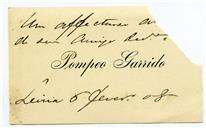 Um affectuoso
de seu Amigo
Pompeo Garrido
Leiria 6 Fever. 08